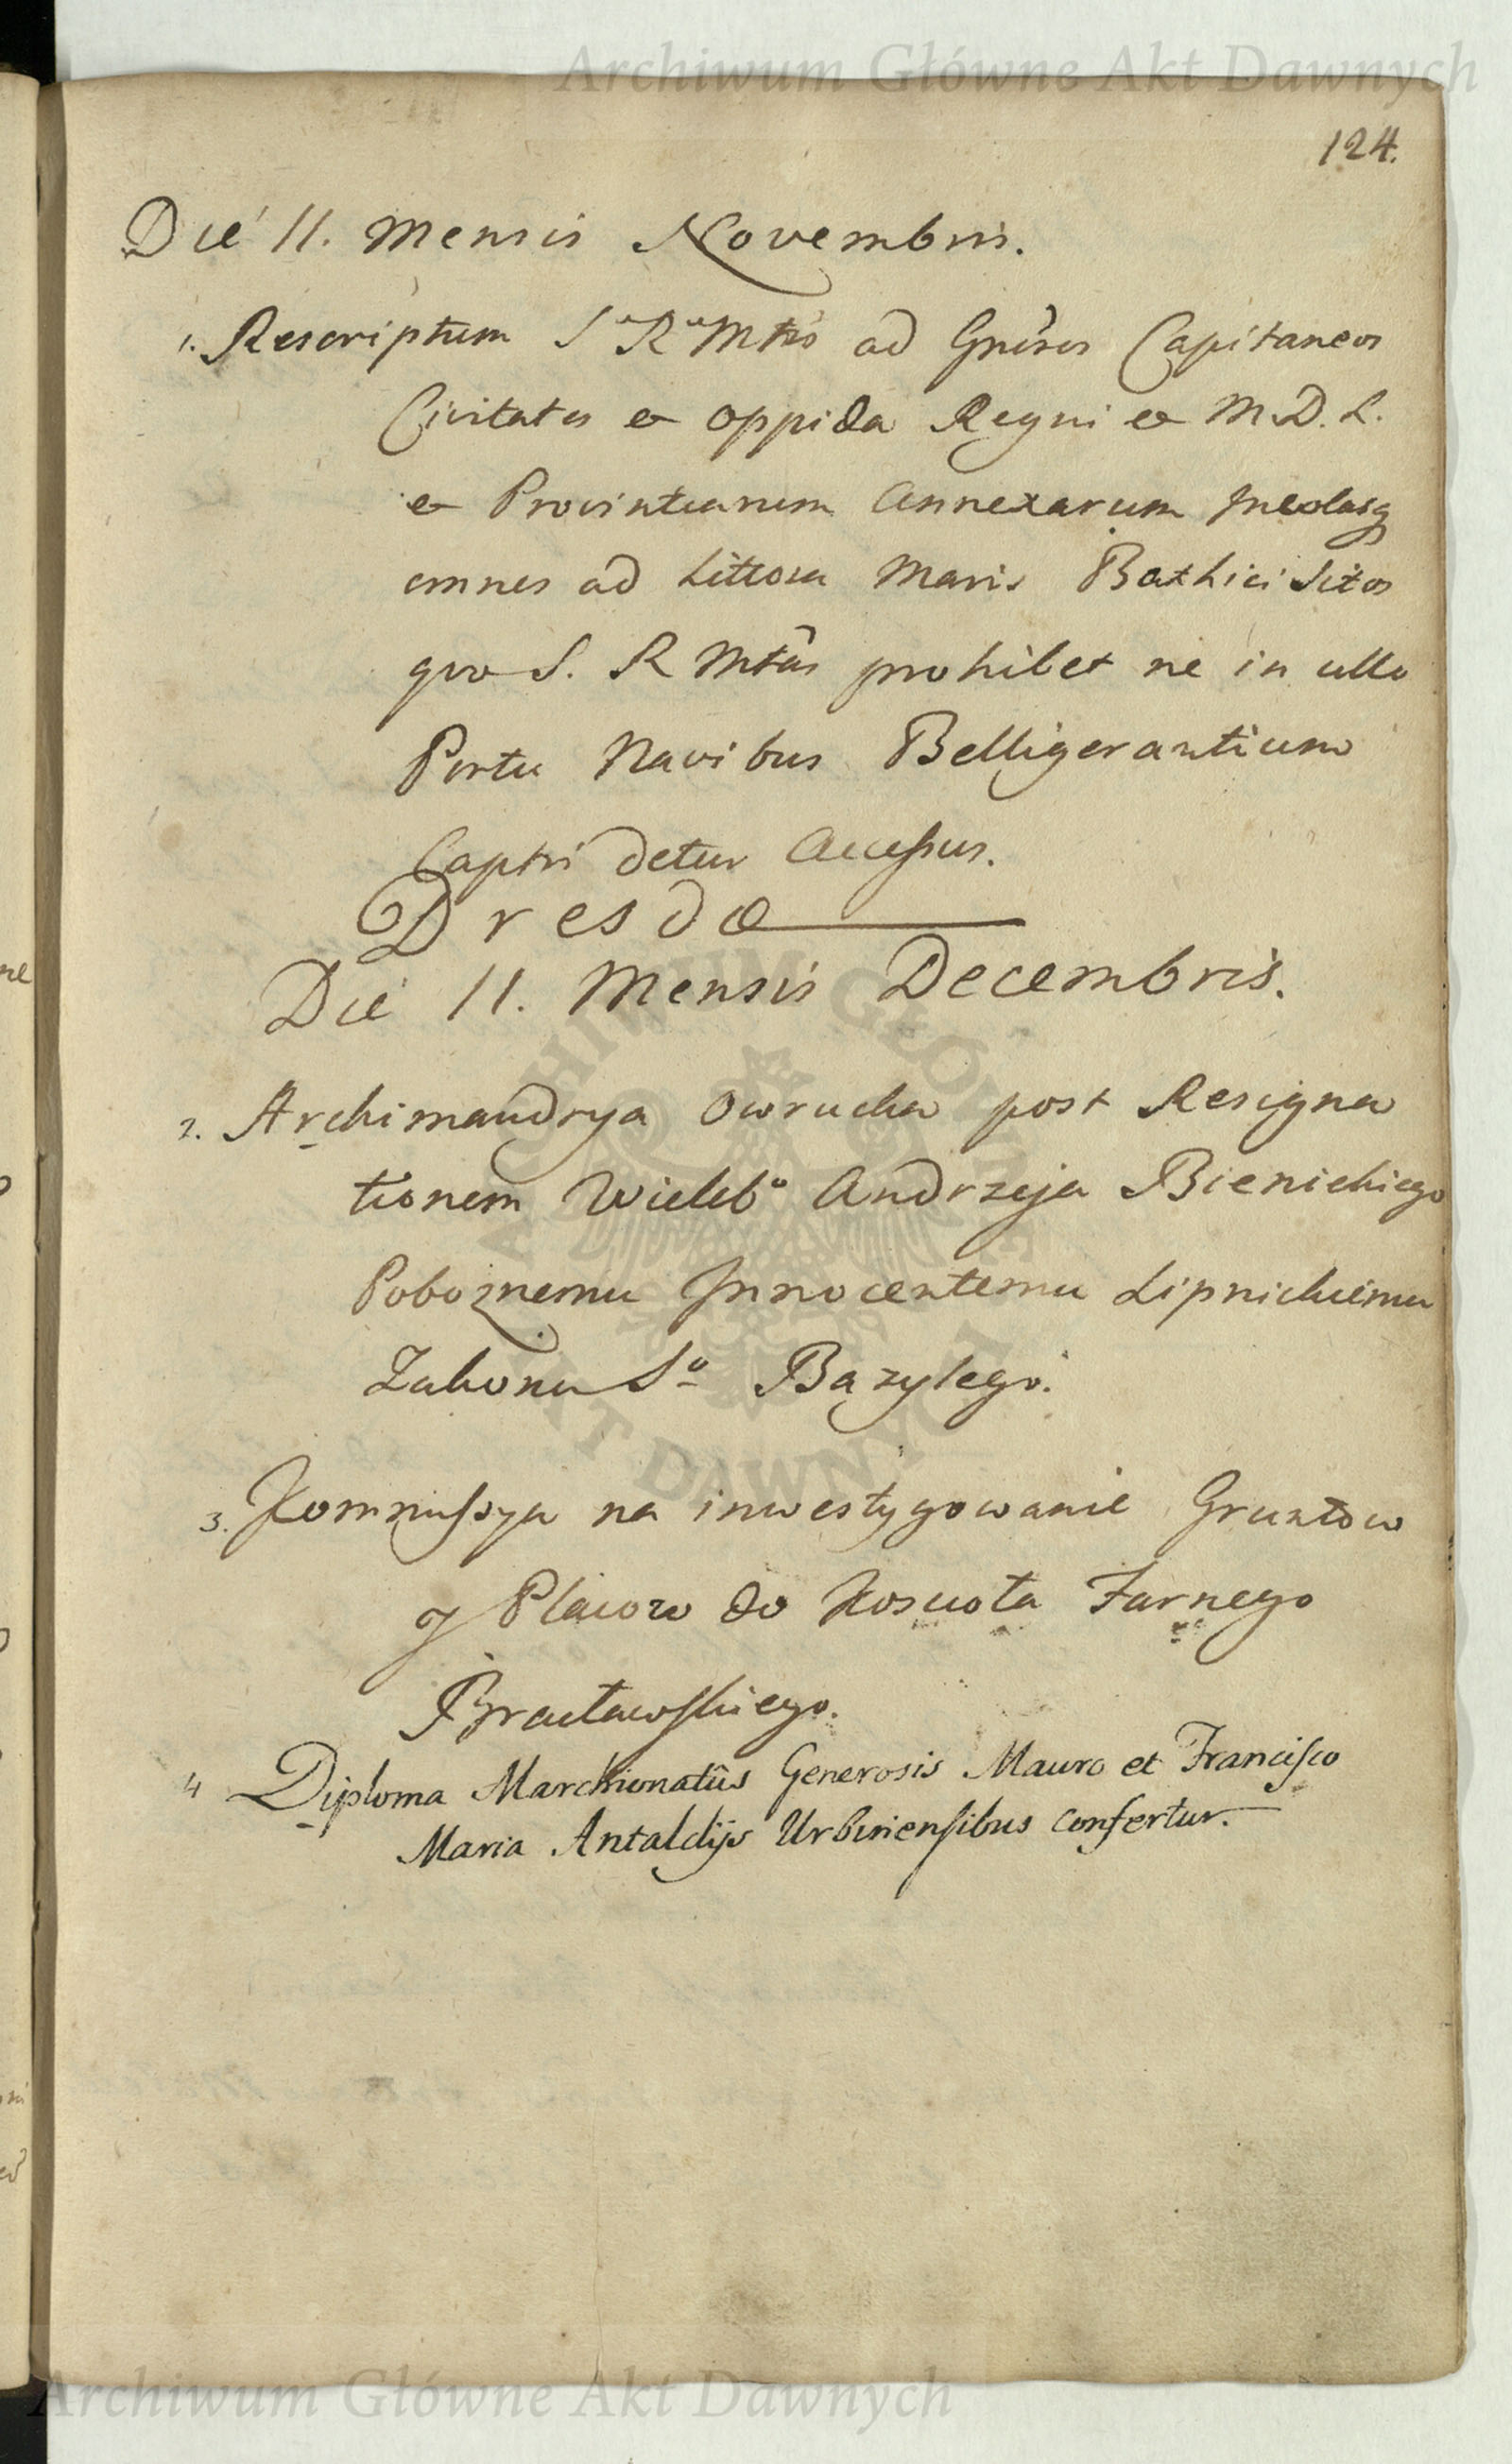 Archiwum Główne Akt Dawnych
124.
Die 11. Mensis Novembris.
1. Rescriptum S. R. Mtis ad Gnros Capitaneos
Civitates et oppida Regni et M. D. L.
et Provintiarum Annexarum Incolasq
omnes ad Littora Maris Balthici Sitos
quo S. R Mtas prohibet ne in ullo
Portu Navibus Belligerantium
Captri detur Accessus.
Dresdæ
Die 11. Mensis Decembris.
2. Archimandrya Owrucka post Resigna
tionem Wieleb° Andrzeja Bienickiego
Poboznemu Innocentemu Lipnickiemu
Zakonu S° Bazylego.
3. Kommissya na inwestygowanie Gruntow
y Placow do Koscioła Farnego
Bracławskiego.
4 Diploma Marchionatûs Generosis Mauro et Francisco
Maria Antaldijs Urbinensibus confertur.
ARCHIWUM GŁÓWNE AKT DAWNYCH
Archiwum Główne Akt Dawnych